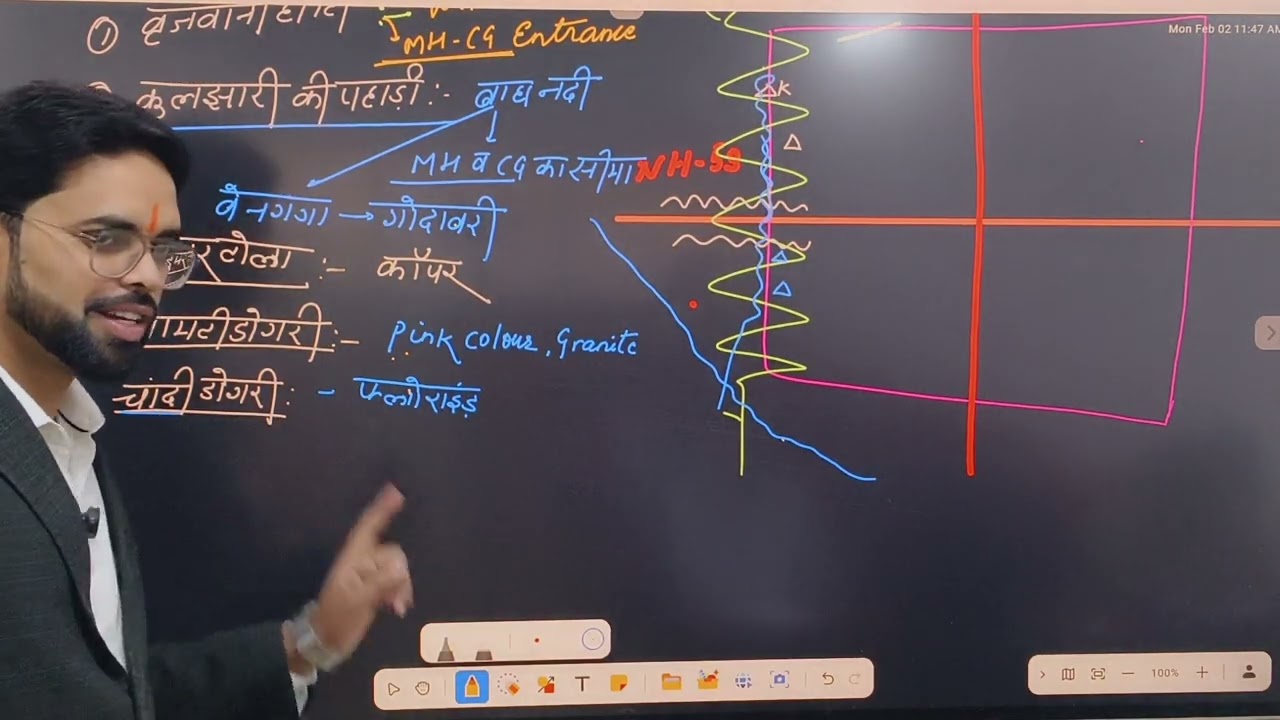 ① बृजवानी घाटी :-
MH-CG Entrance
Mon Feb 02 11:47 AM
कुलझारी की पहाड़ी :- बाघ नदी
MH व CG का सीमा NH-53
K
वेनगंगा → गोदावरी
टोला :- कॉपर
डोंगरी :- Pink colour, Granite
चांदी डोगरी :- फ्लोराइड
T
100%